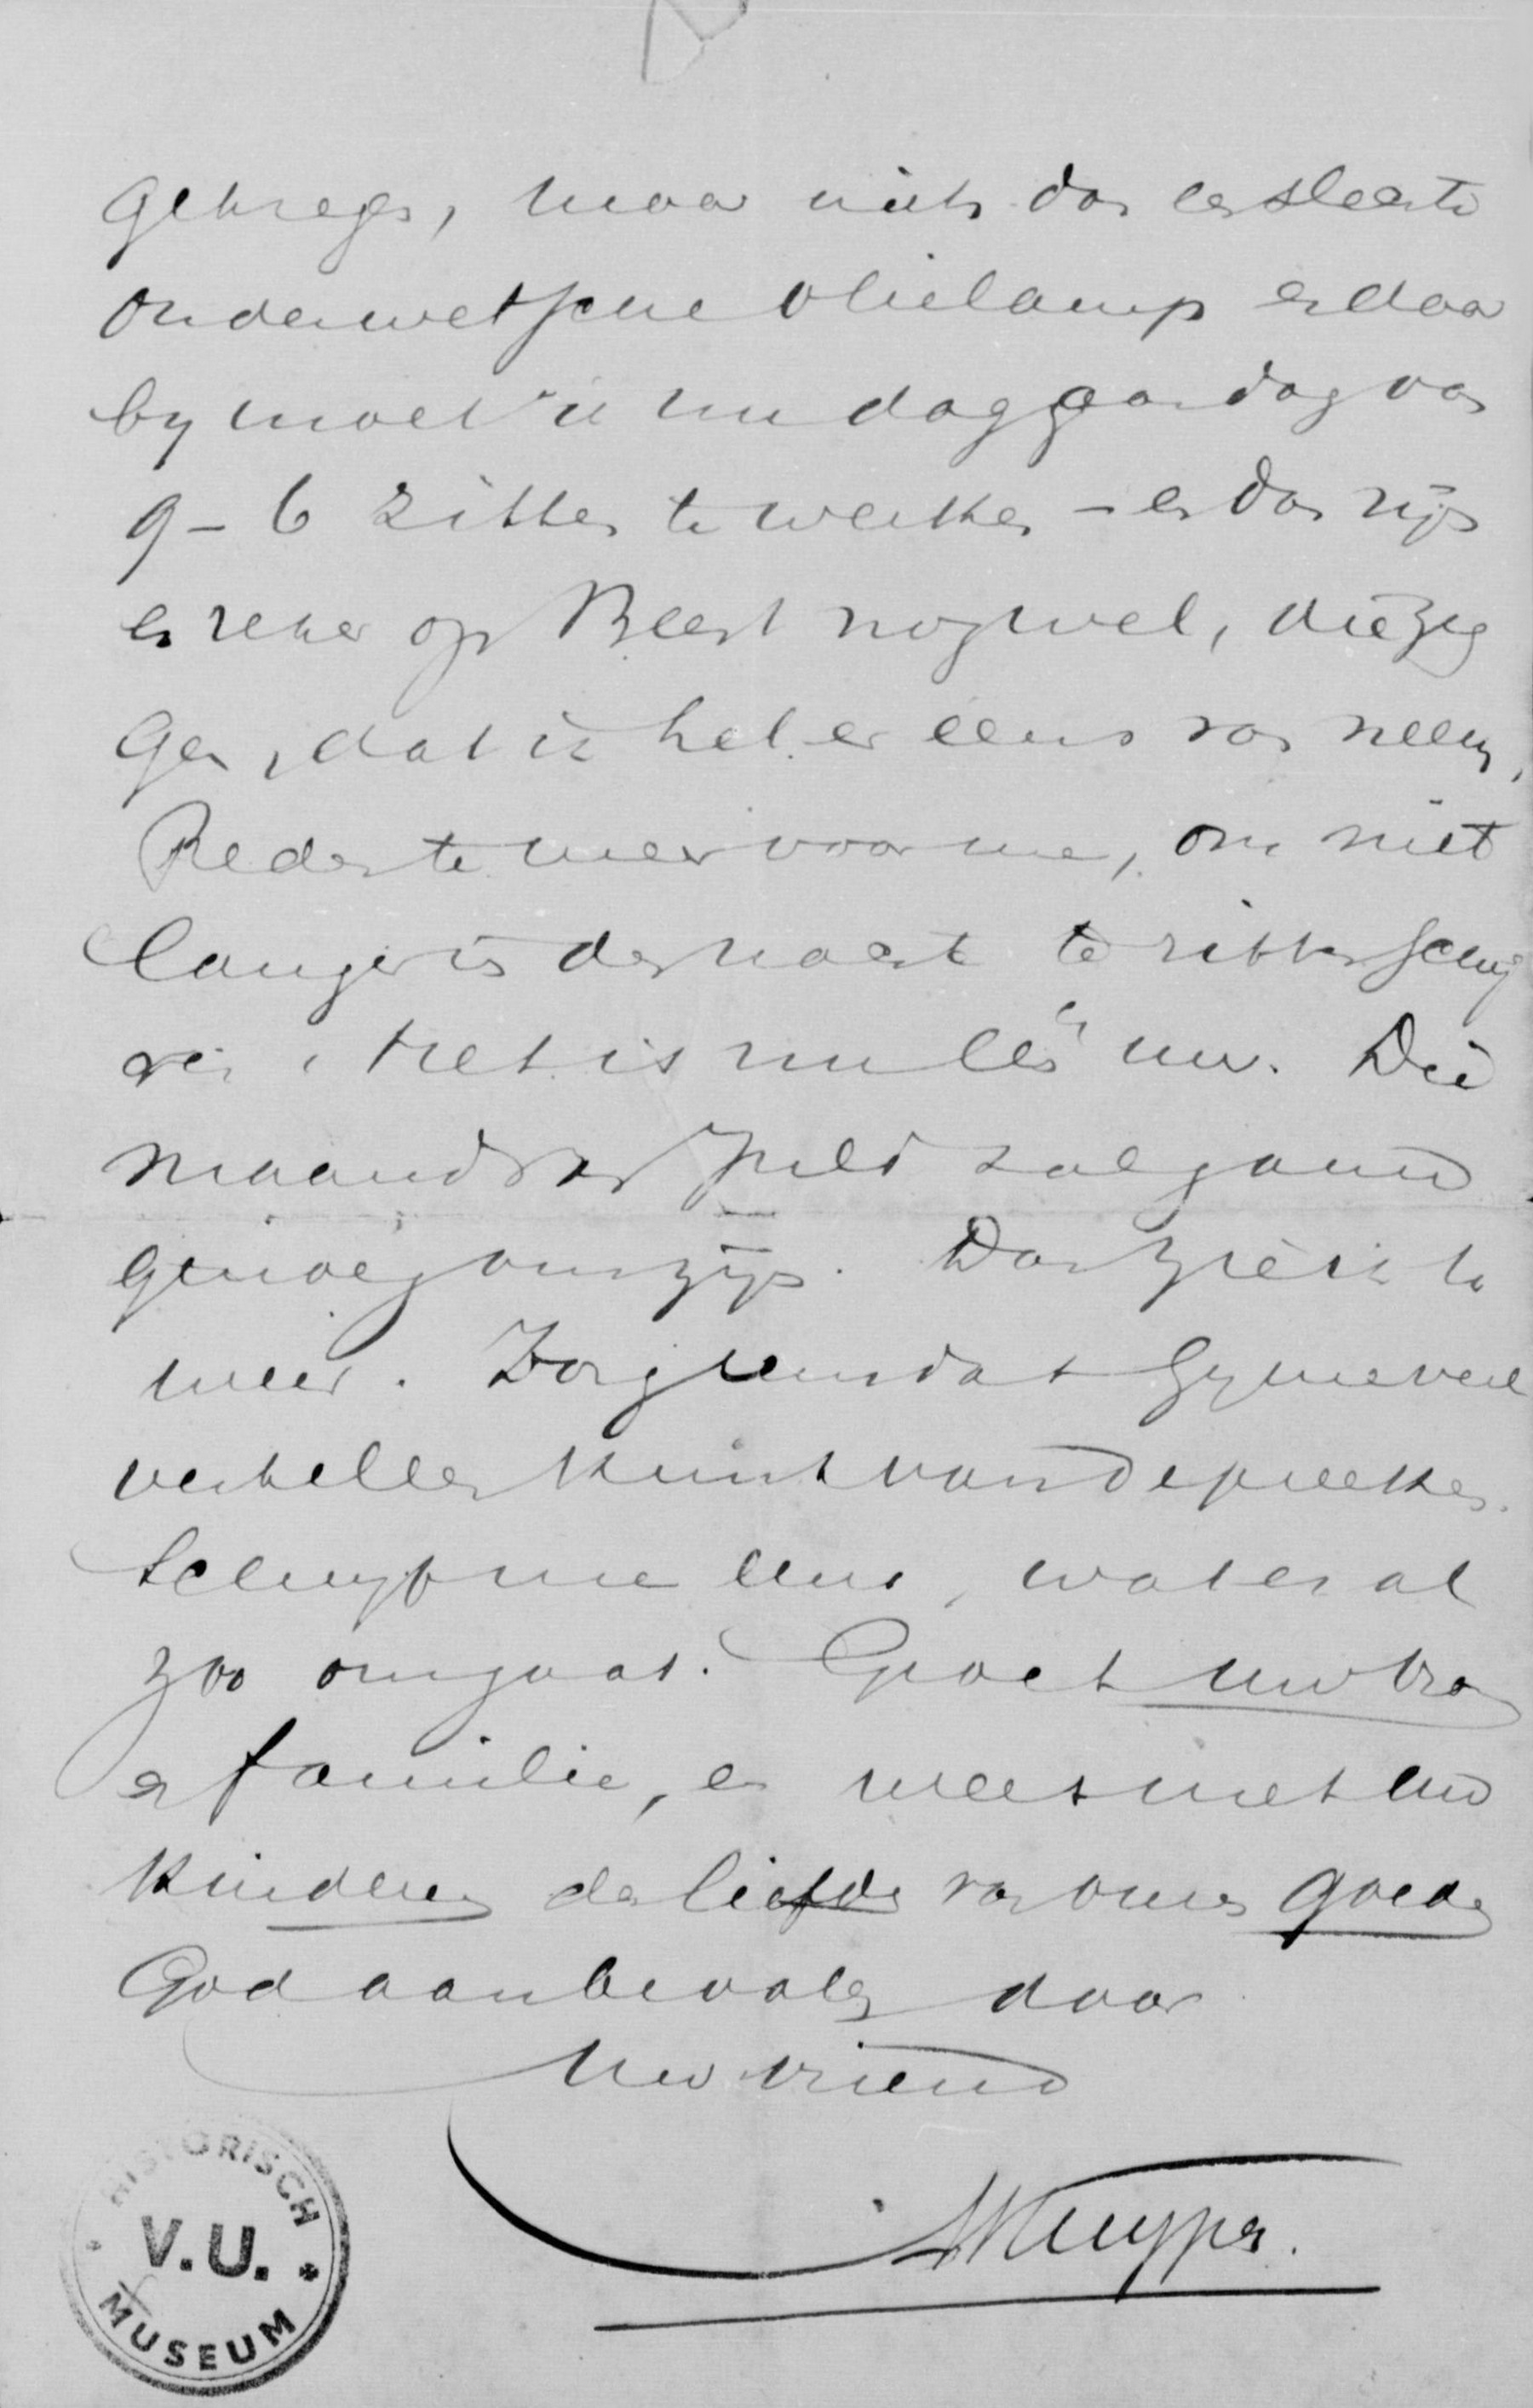 gekregen, maar niets dan een slechte
ouderwetsche olielamp en daar
by moet ik nu dag aan dag van
9 – 6 zitten te werken – en dan zijn
er zeker op Beest nog wel, die zeg
gen, dat ik het er eens van neem,
Reden te meer voor me, om niet
langer in den nacht te zitten schrij
ven, het is nu één uur. Die
maand van Juli zal gaauw
genoeg om zijn. Dan zie ik U
weer. Zorg eens dat Gy me veel
vertellen kunt van de preeken.
Schryf me eens, wat er al
zoo omgaat. Groet uw vrouw
en familie, en wees met uw
kinderen de liefde van onzen goeden
God aanbevolen door
Uw vriend
AKuyper.
HISTORISCH
V.U.
MUSEUM